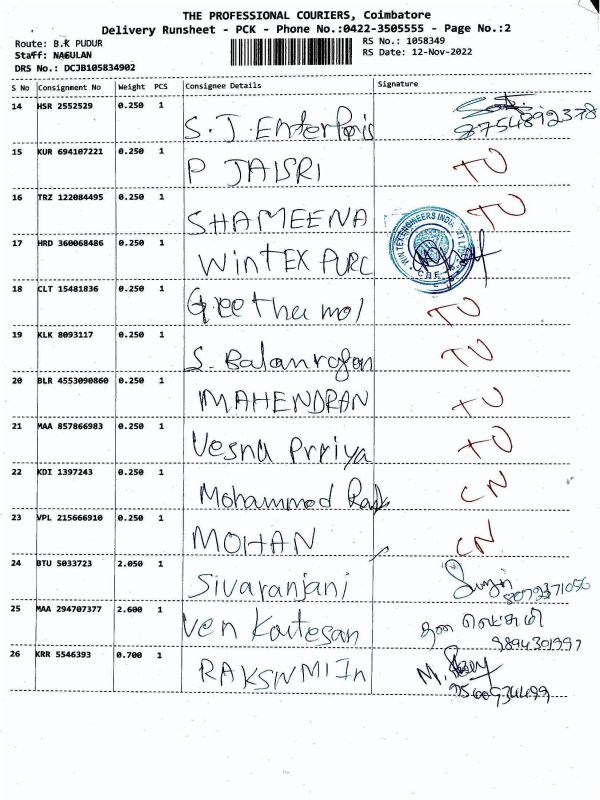 THE PROFESSIONAL COURIERS, Coimbatore
Delivery Runsheet - PCK - Phone No.:0422-3505555 - Page No.:2
Route: B.K PUDUR
RS No.: 1058349
Staff: NAGULAN
RS Date: 12-Nov-2022
DRS No.: DCJB105834902
S No Consignment No Weight PCS Consignee Details Signature
14 HSR 2552529 0.250 1 S. J. Enterpris 8754892378
15 KUR 694107221 0.250 1 P JAISRI TU
16 TRZ 122084495 0.250 1 SHAMEENA TU
17 HRD 360068486 0.250 1 WintEX PURC
18 CLT 15481836 0.250 1 Geetha mol TU
19 KLK 8093117 0.250 1 S. Balanrajan TU
20 BLR 4553090860 0.250 1 MAHENDRAN TU
21 MAA 857866983 0.250 1 Vesna Prriya TU
22 KDI 1397243 0.250 1 Mohammod CN
23 VPL 215666910 0.250 1 MOHAN CN
24 BTU 5033723 2.050 1 Sivaranjani 8072371056
25 MAA 294707377 2.600 1 Ven Katesan 9894301997
26 KRR 5546393 0.700 1 RAKSWMI In M.